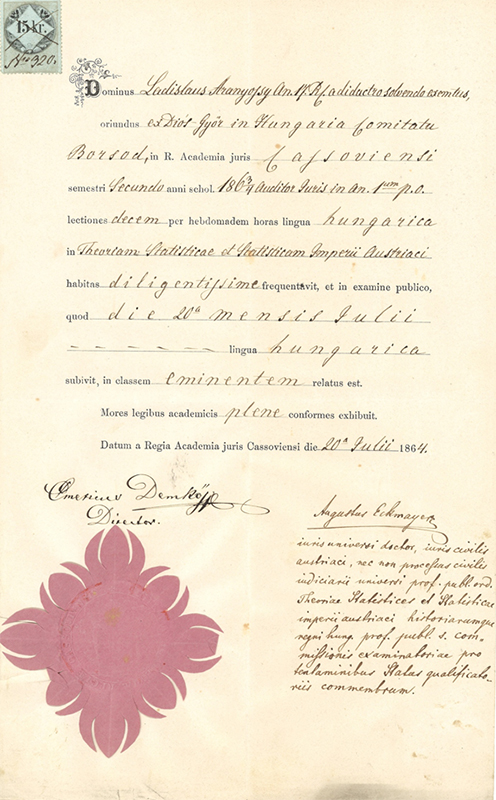 15 kr.
Nro 320.
Dominus Ladislaus Aranyossy An. 17. Rf. a didactro solvendo exemtus,
oriundus ex Diós Győr in Hungaria Comitatu
Borsod, in R. Academia juris Cassoviensi
semestri Secundo anni schol. 1863/4 Auditor Juris in an. 1um p.o.
lectiones decem per hebdomadem horas lingua hungarica
in Theoriam Statisticae et Statisticam Imperii Austriaci
habitas diligentissime frequentavit, et in examine publico,
quod die 20a mensis Julii
— — — — — — lingua hungarica
subivit, in classem eminentem relatus est.
Mores legibus academicis plene conformes exhibuit.
Datum a Regia Academia juris Cassoviensi die 20a Julii 1864.
Emericus
Director.
Augustus Eckmayer
iuris universi doctor, iuris civilis
austriaci, nec non processus civilis
iudiciarii universi prof. publ. ord.
Theoriae Statistices et Statisticae
imperii austriaci historiarumque
regni hung. prof. publ. s. com-
missionis examinatoriae pro
tentaminibus Status qualificato-
riis commembrum.